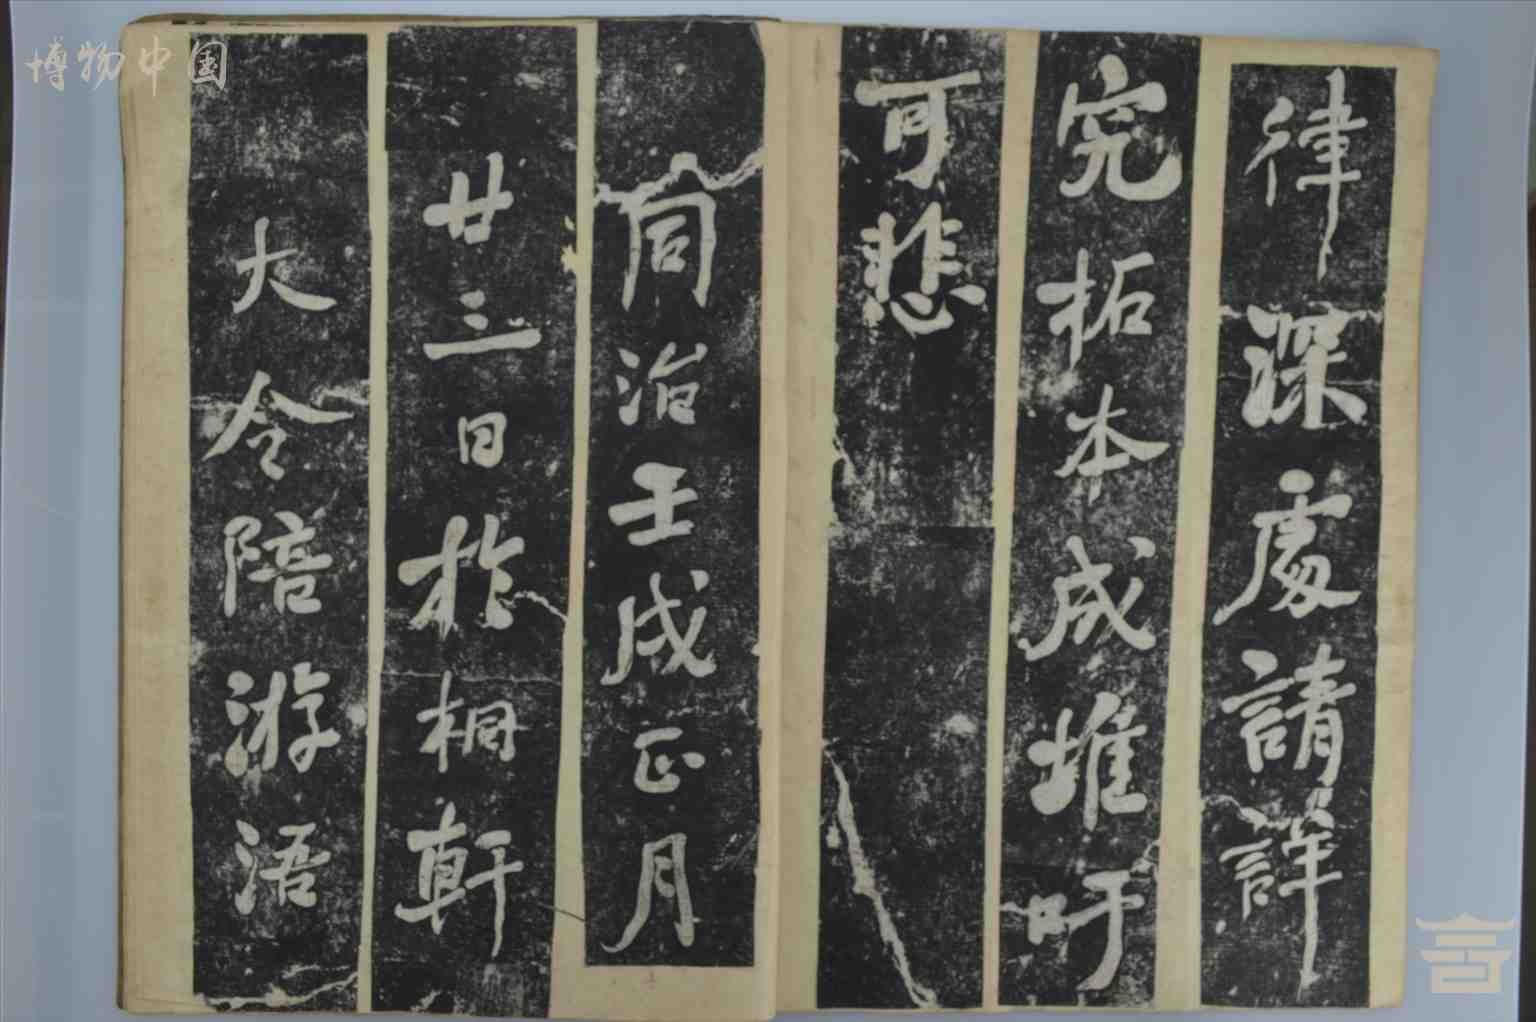 律深處請詳
究拓本成堆吁
可悲
同治壬戌正月
廿三日於桐軒
大令陪游浯
博物中国